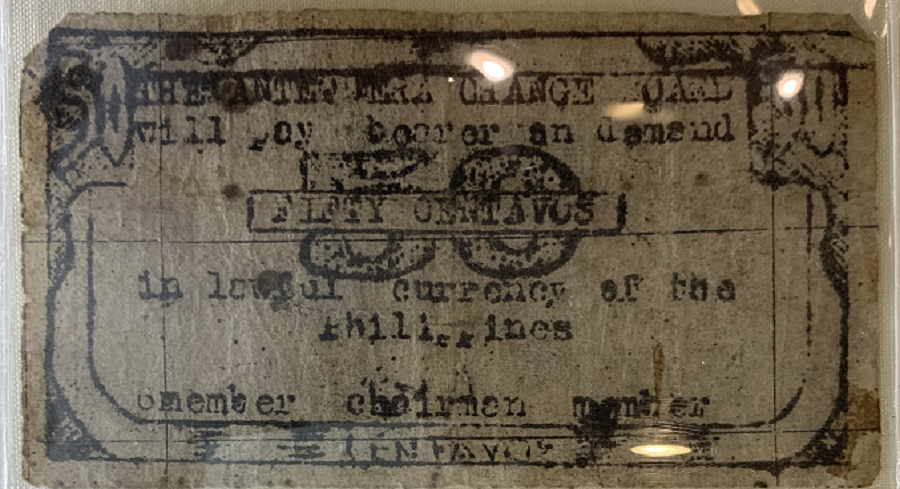 THE CHANGE
will pay bearer on demand
50
FIFTY CENTAVOS
in lawful currency of the
Philippines
member chairman member
CENTAVOS